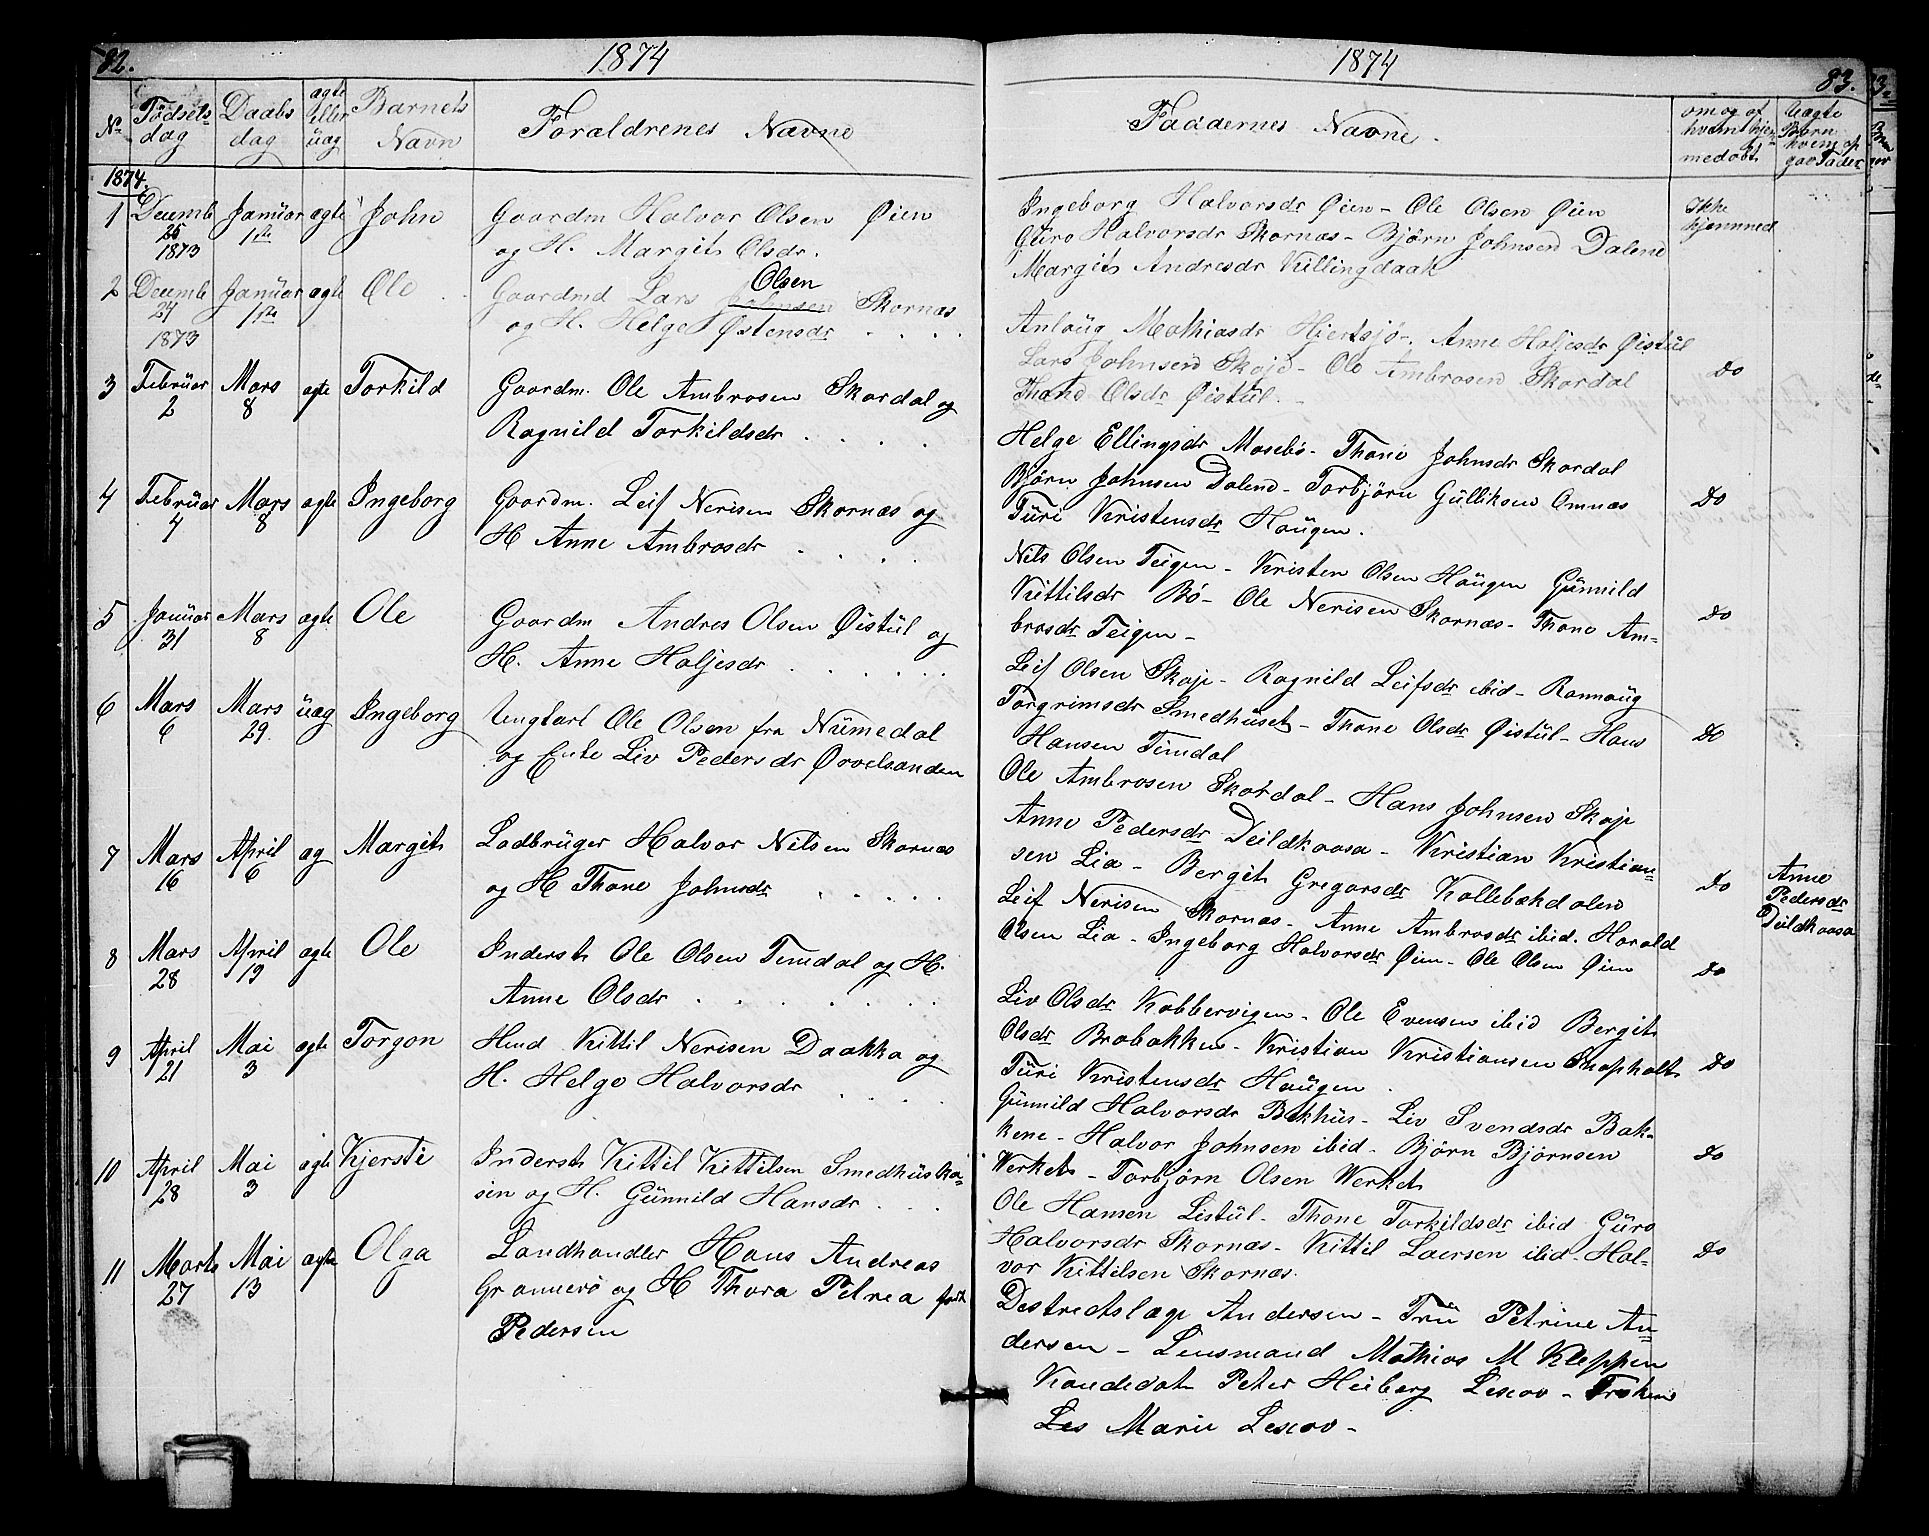 82.
1874
No
Fødsels
dag
Daabs
dag
ægte
Eller
uæg
Barnets
Navn
Foraldrenes Navne
1874.
1 Decemb Januar ægte John Gaardm Halvor Olsen Øien
1ste
1873 og H. Margit Olsdr.
2 Decemb Januar ægte Ole Gaardmd Lars Johnsen Olsen Skornæs
27 1ste og H. Helge Østensdr
1873
3 Februar Mars ægte Torkild Gaardm. Ole Ambrosen Skordal og
2 8 Ragnild Torkildsdr
4 Februar Mars ægte Ingeborg Gaardm. Leif Nerisen Skornæs og
4 8 H Anne Ambrosdr
5 Januar Mars ægte Ole Gaardm Andres Olsen Øistul og
31 8 H. Anne Haljesdr
6 Mars Mars uæg Ingeborg Ungkarl Ole Olsen fra Numedal
6 29. og Enke Liv Pedersdr Ørvelsanden
7 Mars April æg Margit Ladbruger Halvor Nilsen Skornæs
16 6 og H Thone Johnsdr
8 Mars April ægte Ole Inderst Ole Olsen Temdal og H.
28 19 Anne Olsdr
9 April Mai ægte Torgon Hmd Kittil Nerisen Daakka og
21 3 H. Helge Halvorsdr
10 April Mai ægte Kjersti Inderst Kittil Kittilsen Smedhuska-
28 3 sen og H. Gunnild Hansdr
11 Marts Mai ægte Olga Landhandler Hans Andreas
27 13 Grannerø og H Thora Petrea født
Pedersen
1874
83.
Faddernes Navne.
om og af
hvem hjem-
medøbt
Uægte
Børn
hvem op
gav Fader
Ingeborg Halvorsdr Øien - Ole Olsen Øien Ikke
Guro Halvorsdr Skornæs - Bjørn Johnsen Dalene hjemmed
Margit Andresdr Killingdaak
Anlaug Mathiasdr Hjertsjø -. Anne Haljesdr Øistul
Lars Johnsen Skaje - Ole Ambrosen Skordal Do
Thone Olsdr Øistul. -
Helge Ellingsdr Mosebø - Thone Johnsdr Skordal
Bjørn Johnsen Dalend - Torbjørn Gulliksen Omnæs Do
Turi Kristensdr Haugen.
Nils Olsen Teigen - Kristen Olsen Haugen Gunnild
Kittilsdr Bø - Ole Nerisen Skornæs - Thone Am- Do
brosdr Teigen -
Leif Olsen Skaje - Ragnild Leifsdr ibid - Rannaug
Torgrimsdr Smedhuset - Thone Olsdr Øistul - Hans Do
Hansen Temdal
Ole Ambrosen Skordal - Hans Johnsen Skaje
Anne Pedersdr Deildkaasa - Kristian Kristian-
sen Lia - Bergit Gregarsdr Kollebækdalen Do Anne
Pedersdr
Deildkaasa
Leif Nerisen Skornæs - Anne Ambrosdr ibid. Harald
Olsen Lia - Ingeborg Halvorsdr Øien - Ole Olsen Øien Do
Liv Olsdr Kobbervigen - Ole Evensen ibid Bergit
Olsdr Brobakken - Kristian Kristiansen Snapholt Do
Turi Kristensdr Haugen.
Gunnild Halvorsdr Bakhus - Liv Svendsdr Bak-
kene - Halvor Johnsen ibid - Bjørn Bjørnsen Do
Werket - Torbjørn Olsen Werket
Ole Hansen Listul - Thone Torkildsdr ibid Guro
Halvorsdr Skornæs - Kittil Laersen ibid - Hal- Do
vor Kittilsen Skornæs.
Destrectslæge Andersen - Fru Petrine An-
dersen - Lensmand Mathias M Kleppen
Kandidat Peter Heiberg Lescov - Frøken
Les Marie Lescov -